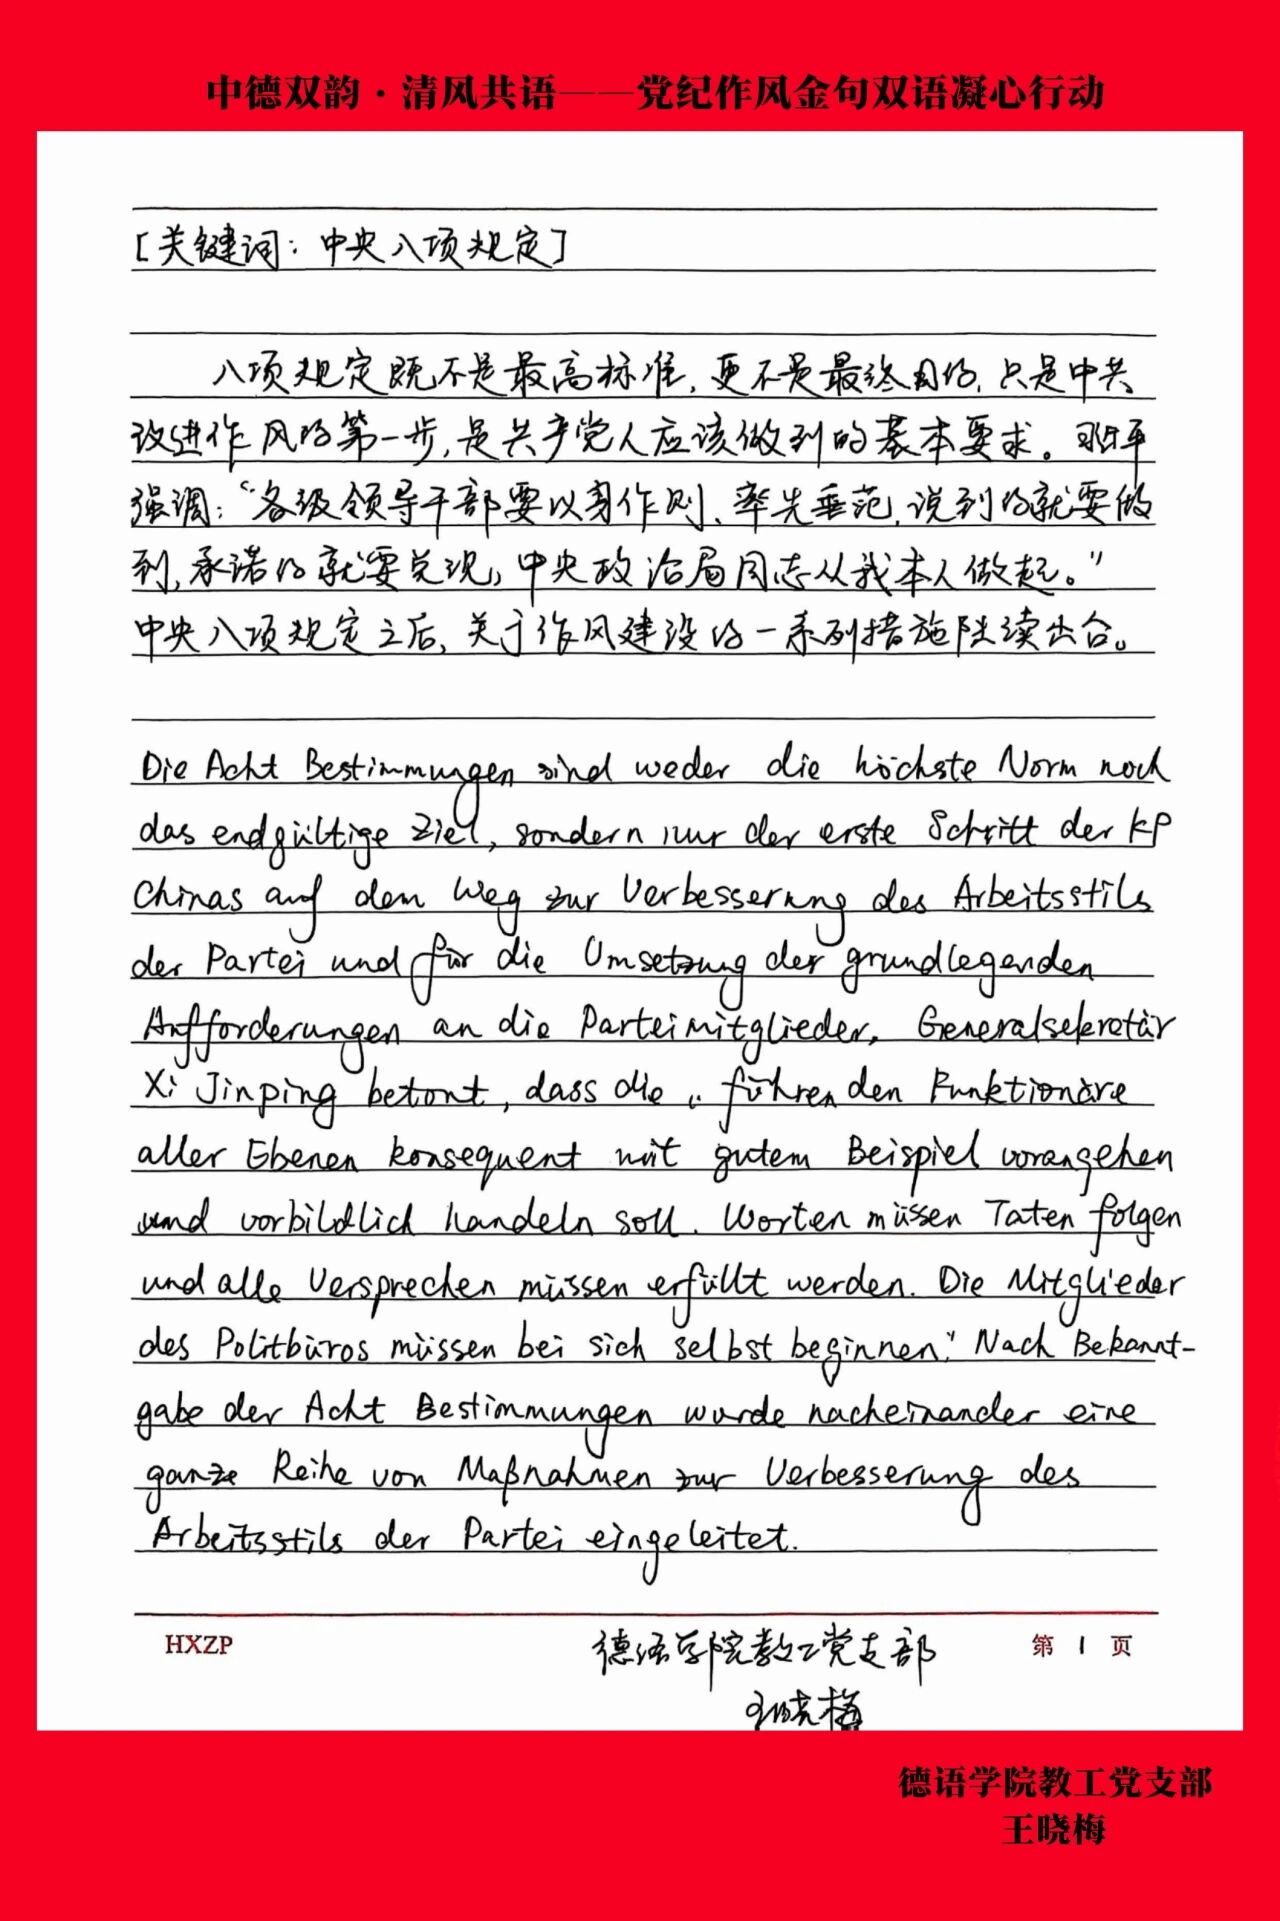 中德双韵·清风共语——党纪作风金句双语凝心行动
[关键词：中央八项规定]
八项规定既不是最高标准，更不是最终目的，只是中共
改进作风的第一步，是共产党人应该做到的基本要求。习近平
强调：“各级领导干部要以身作则、率先垂范，说到的就要做
到，承诺的就要兑现，中央政治局同志从我本人做起。”
中央八项规定之后，关于作风建设的一系列措施陆续出台。
Die Acht Bestimmungen sind weder die höchste Norm noch
das endgültige Ziel, sondern nur der erste Schritt der KP
Chinas auf dem Weg zur Verbesserung des Arbeitsstils
der Partei und für die Umsetzung der grundlegenden
Aufforderungen an die Parteimitglieder. Generalsekretär
Xi Jinping betont, dass die „führenden Funktionäre
aller Ebenen konsequent mit gutem Beispiel vorangehen
und vorbildlich handeln soll. Worten müssen Taten folgen
und alle Versprechen müssen erfüllt werden. Die Mitglieder
des Politbüros müssen bei sich selbst beginnen.“ Nach Bekannt-
gabe der Acht Bestimmungen wurde nacheinander eine
ganze Reihe von Maßnahmen zur Verbesserung des
Arbeitsstils der Partei eingeleitet.
HXZP 德语学院教工党支部 第 1 页
王晓梅
德语学院教工党支部
王晓梅